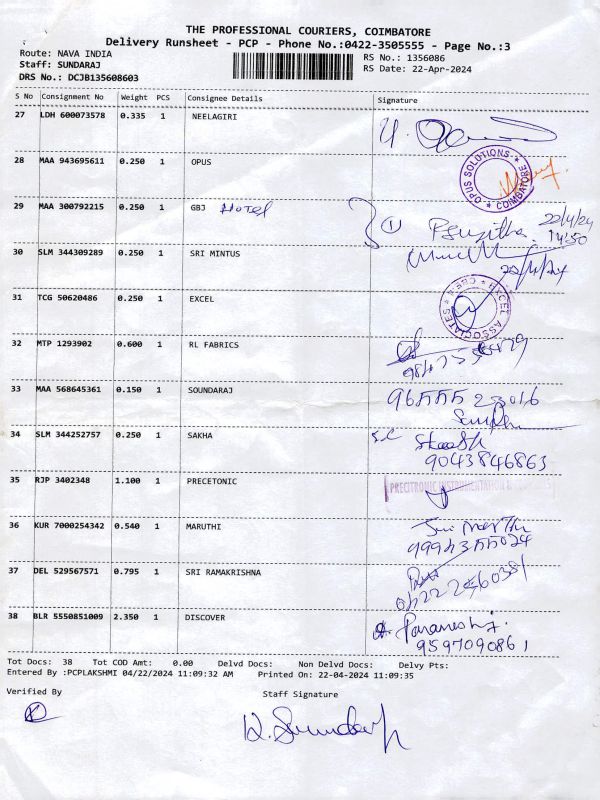 THE PROFESSIONAL COURIERS, COIMBATORE
Delivery Runsheet - PCP - Phone No.:0422-3505555 - Page No.:3
Route: NAVA INDIA
RS No.: 1356086
Staff: SUNDARAJ
RS Date: 22-Apr-2024
DRS No.: DCJB135608603
S No Consignment No Weight PCS Consignee Details Signature
27 LDH 600073578 0.335 1 NEELAGIRI
28 MAA 943695611 0.250 1 OPUS
OPUS SOLUTIONS
COIMBATORE
29 MAA 300792215 0.250 1 GBJ Hotel
1 22/4/24
14:50
30 SLM 344309289 0.250 1 SRI MINTUS
22/4/24
31 TCG 50620486 0.250 1 EXCEL
EXCEL ASSOCIATES CBE
32 MTP 1293902 0.600 1 RL FABRICS
33 MAA 568645361 0.150 1 SOUNDARAJ
34 SLM 344252757 0.250 1 SAKHA
9043846863
35 RJP 3402348 1.100 1 PRECETONIC
PRECITRONIC INSTRUMENTATION
36 KUR 7000254342 0.540 1 MARUTHI
37 DEL 529567571 0.795 1 SRI RAMAKRISHNA
38 BLR 5550851009 2.350 1 DISCOVER
9597090861
Tot Docs: 38 Tot COD Amt: 0.00 Delvd Docs: Non Delvd Docs: Delvy Pts:
Entered By :PCPLAKSHMI 04/22/2024 11:09:32 AM Printed On: 22-04-2024 11:09:35
Verified By Staff Signature